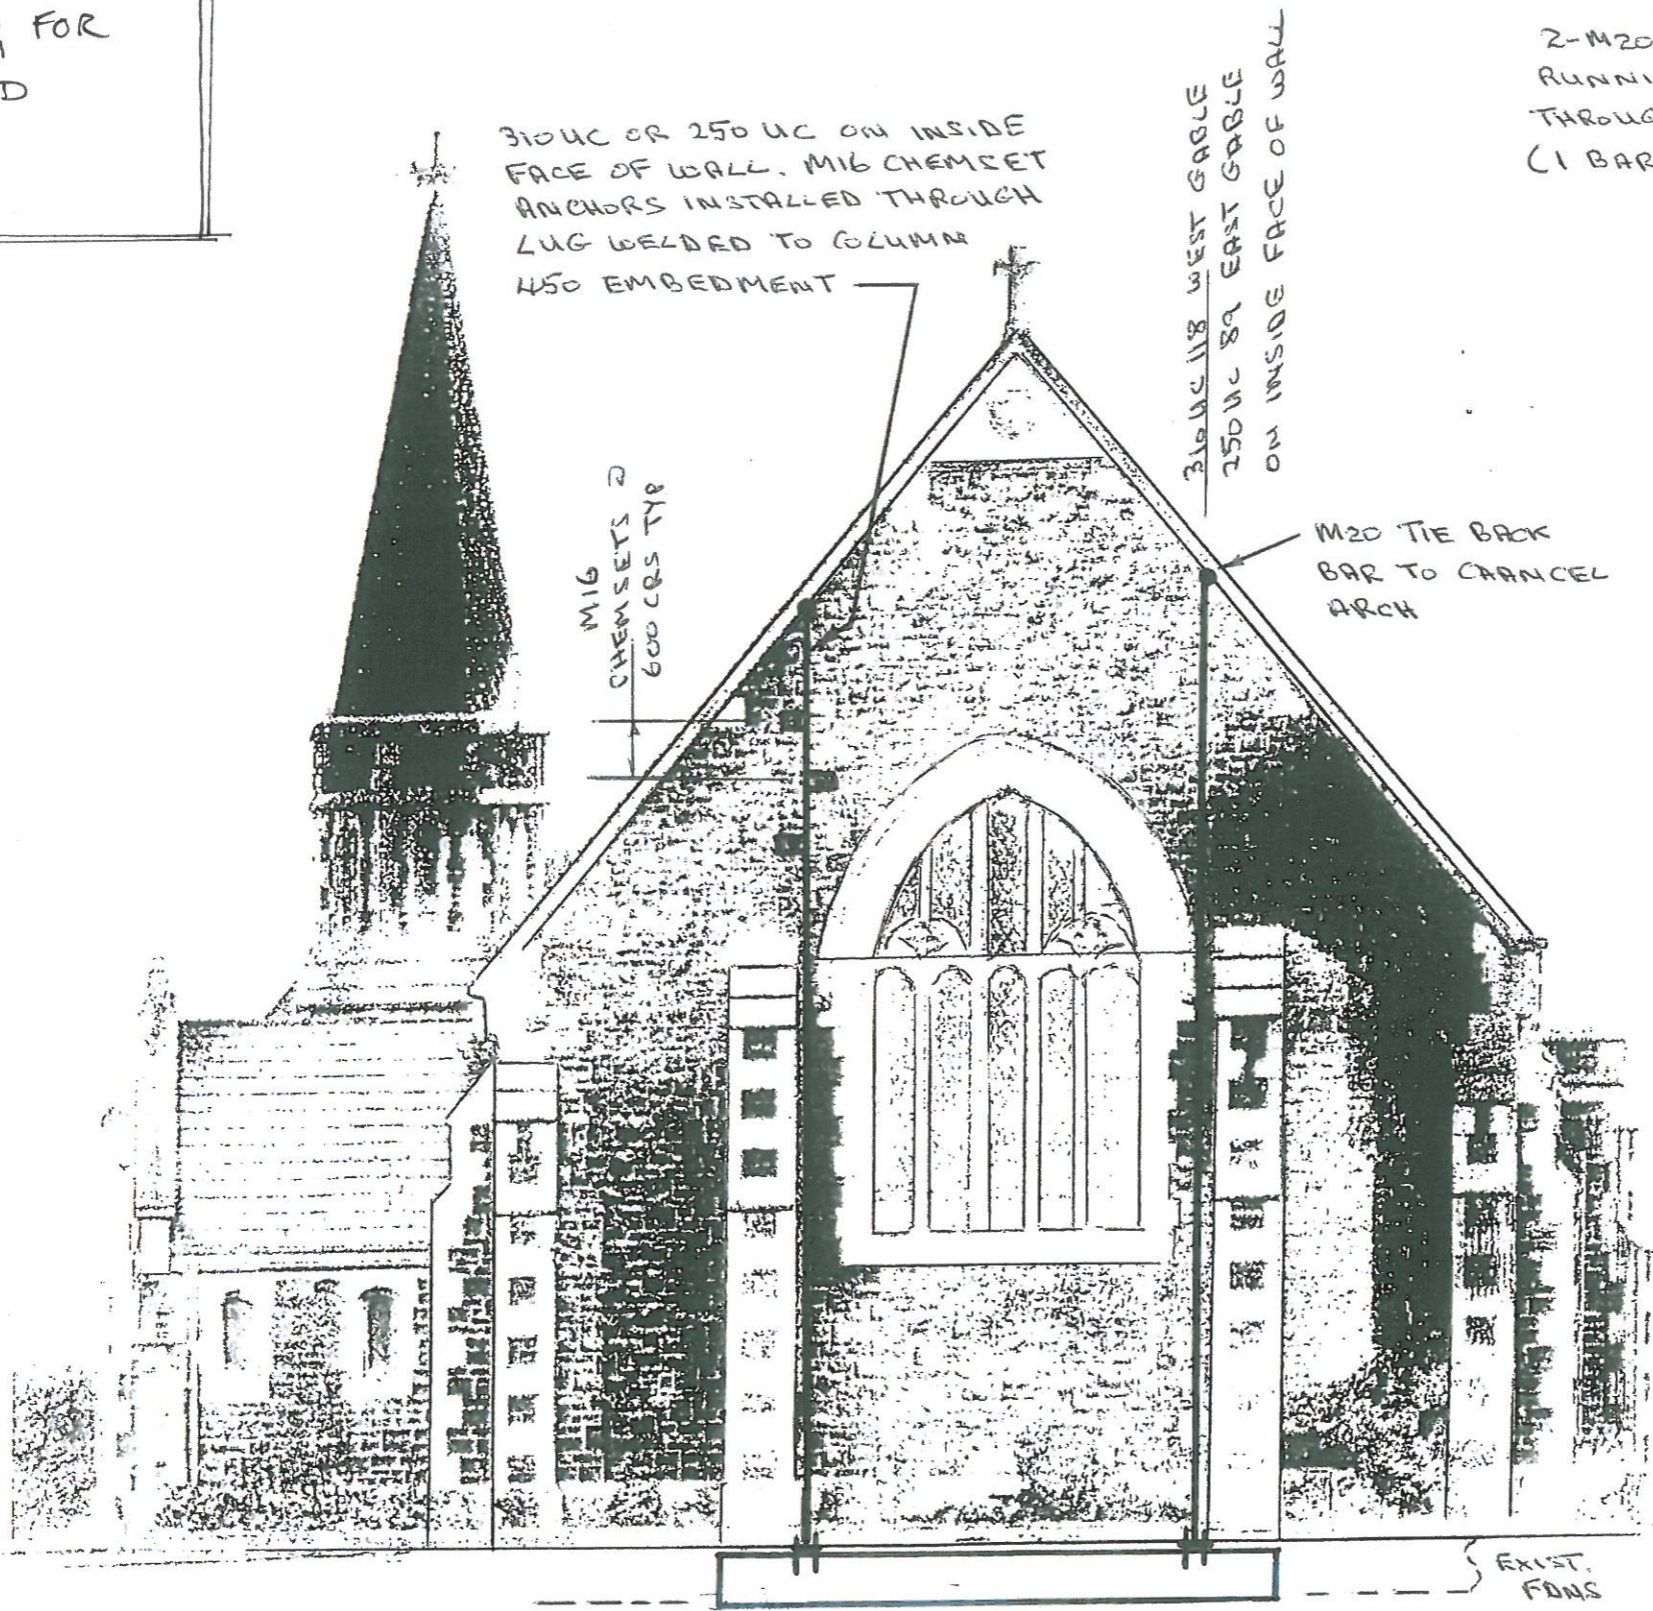 FOR
D
310UC OR 250 UC ON INSIDE
FACE OF WALL. M16 CHEMSET
ANCHORS INSTALLED THROUGH
LUG WELDED TO COLUMN
450 EMBEDMENT
310 UC 118 WEST GABLE
250 UC 89 EAST GABLE
ON INSIDE FACE OF WALL
2-M20
RUNNI
THROUG
(1 BAR
M16
CHEMSETS @
600 CRS TYP
M20 TIE BACK
BAR TO CHANCEL
ARCH
EXIST.
FDNS